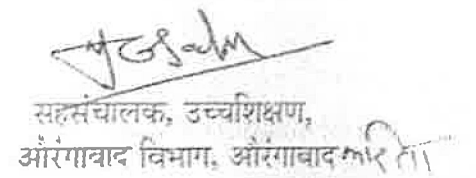 सहसंचालक, उच्चशिक्षण,
औरंगाबाद विभाग, औरंगाबाद करिता